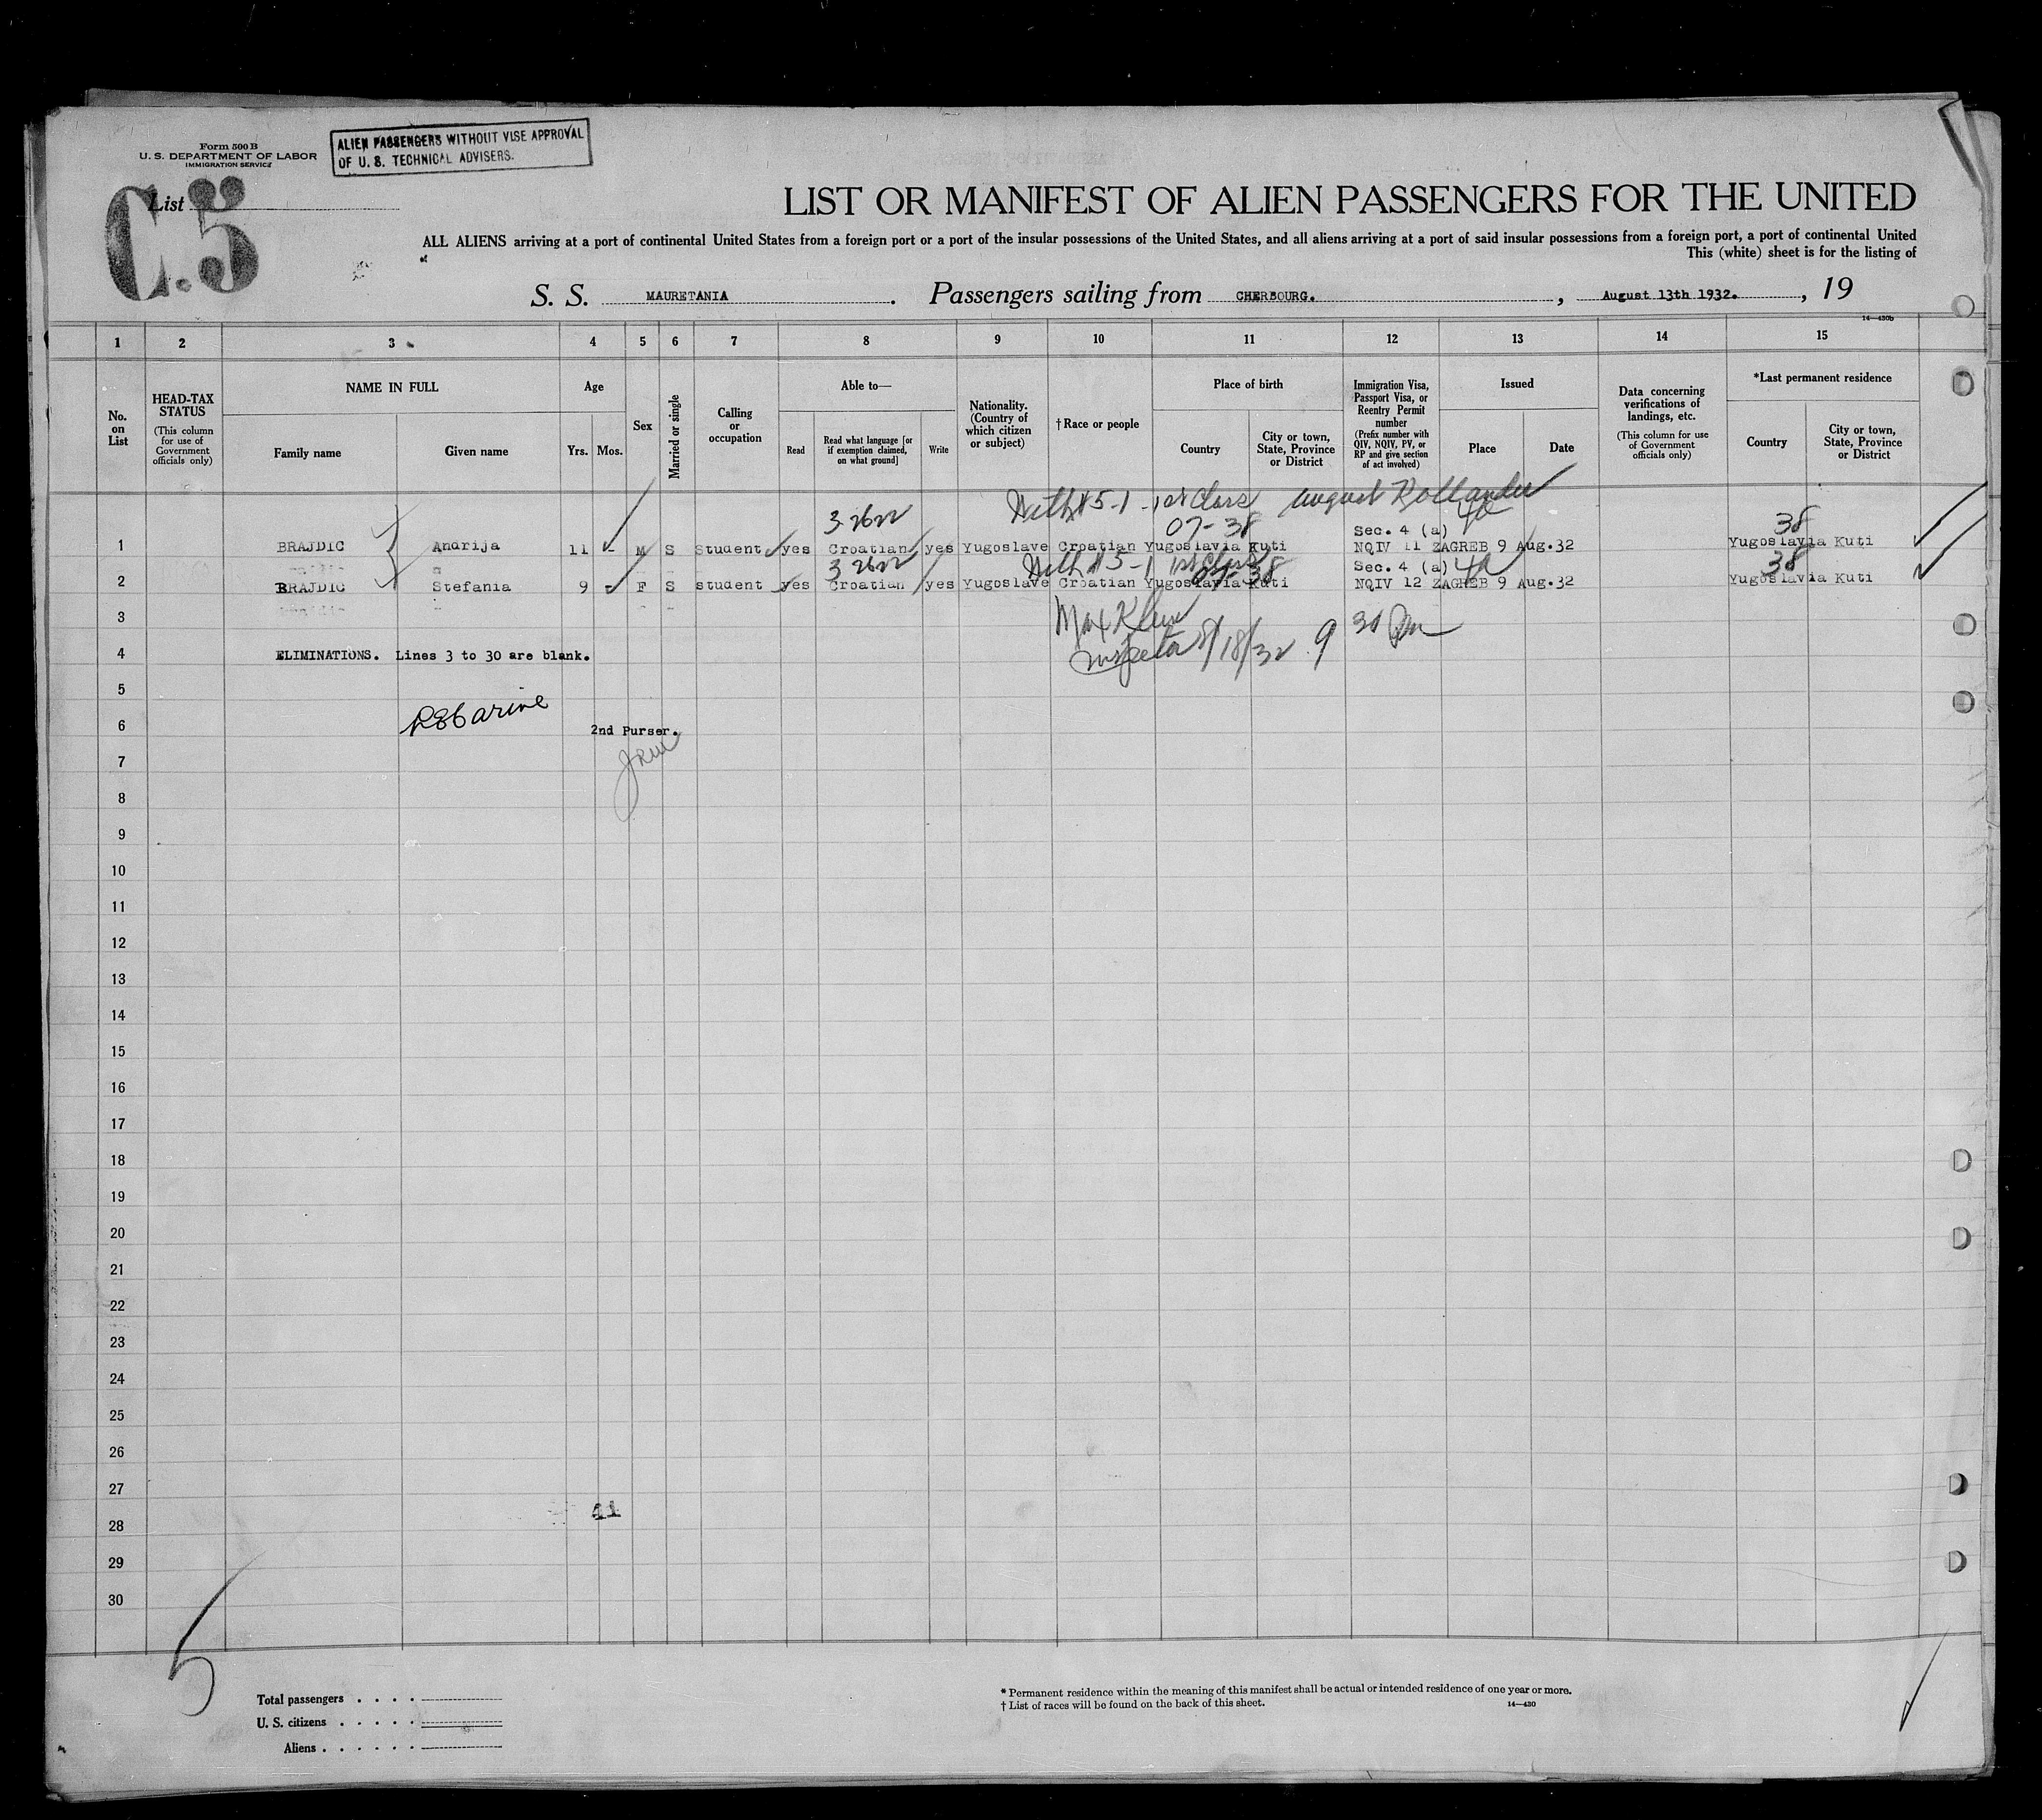 Form 500 B
U. S. DEPARTMENT OF LABOR
IMMIGRATION SERVICE
ALIEN PASSENGERS WITHOUT VISE APPROVAL
OF U. S. TECHNICAL ADVISERS.
List
C.5
LIST OR MANIFEST OF ALIEN PASSENGERS FOR THE UNITED
ALL ALIENS arriving at a port of continental United States from a foreign port or a port of the insular possessions of the United States, and all aliens arriving at a port of said insular possessions from a foreign port, a port of continental United
This (white) sheet is for the listing of
S. S. MAURETANIA . Passengers sailing from CHERBOURG. , August 13th 1932. , 19
14—430b
1 2 3 4 5 6 7 8 9 10 11 12 13 14 15
No. on List
HEAD-TAX STATUS
(This column for use of Government officials only)
NAME IN FULL
Family name
Given name
Age
Yrs. Mos.
Sex
Married or single
Calling or occupation
Able to—
Read
Read what language [or if exemption claimed, on what ground]
Write
Nationality. (Country of which citizen or subject)
†Race or people
Place of birth
Country
City or town, State, Province or District
Immigration Visa, Passport Visa, or Reentry Permit number
(Prefix number with QIV, NQIV, PV, or RP and give section of act involved)
Issued
Place
Date
Data concerning verifications of landings, etc.
(This column for use of Government officials only)
*Last permanent residence
Country
City or town, State, Province or District
#5-1 1st Class August
07-38 Sec. 4 (a) 38
1 BRAJDIC Andrija 11 - M S Student yes Croatian yes Yugoslave Croatian Yugoslavia Kuti NQIV 11 ZAGREB 9 Aug.32 Yugoslavia Kuti
#5-1 1st Class 38 Sec. 4 (a) 38
2 BRAJDIC Stefania 9 - F S student yes Croatian yes Yugoslave Croatian Yugoslavia Kuti NQIV 12 ZAGREB 9 Aug.32 Yugoslavia Kuti
3
Max Klein
4 ELIMINATIONS. Lines 3 to 30 are blank.
Inspector 8/18/32 9 30 Pm
5
6 2nd Purser.
7
8
9
10
11
12
13
14
15
16
17
18
19
20
21
22
23
24
25
26
27
28
29
30
5
Total passengers . . . .
U. S. citizens . . . . .
Aliens . . . . . .
* Permanent residence within the meaning of this manifest shall be actual or intended residence of one year or more.
† List of races will be found on the back of this sheet.
14—430